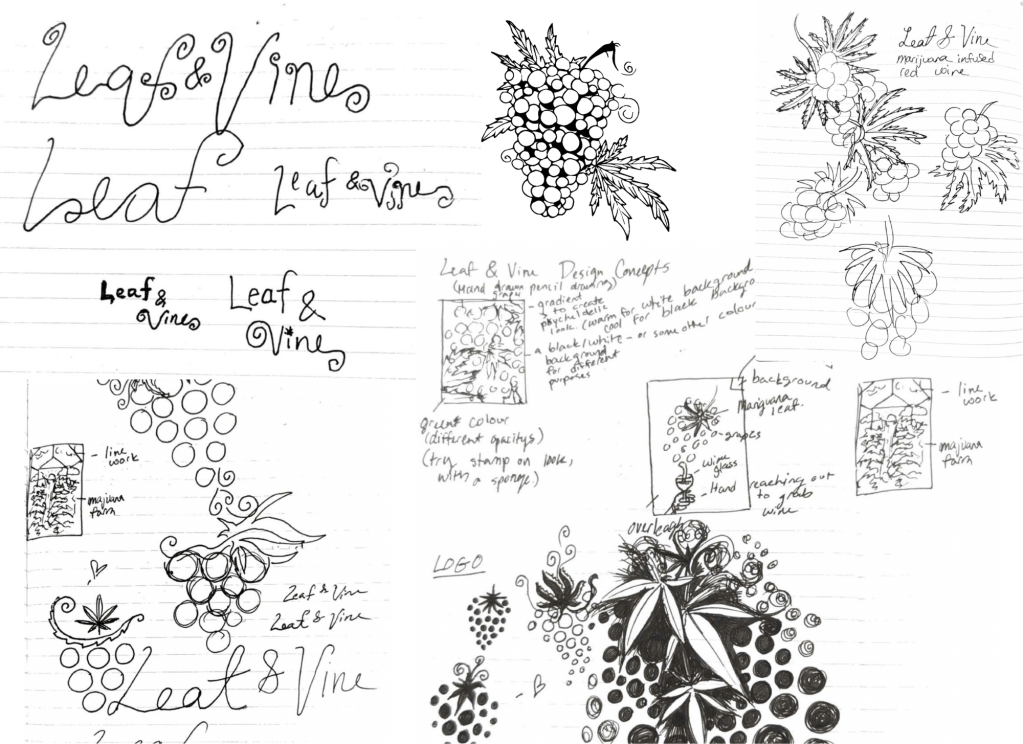 Leaf & Vine
Leaf
Leaf & Vine
Leaf &
Vine
Leaf &
Vine
Leaf & Vine
marijuana infused
red wine
Leaf & Vine Design Concepts
(Hand drawn pencil drawing)
- gradient
to create
look. (warm for white background
cool for black
a black/white - or some other colour
background
for different
purposes
colour
(different opacitys)
(try stamp on look,
with a sponge)
background
Marijuana
leaf.
grapes
wine
glass
Hand reaching out
to grab
wine
line
work
farm
line
work
farm
Leaf & Vine
Leaf & Vine
Leaf & Vine
LOGO